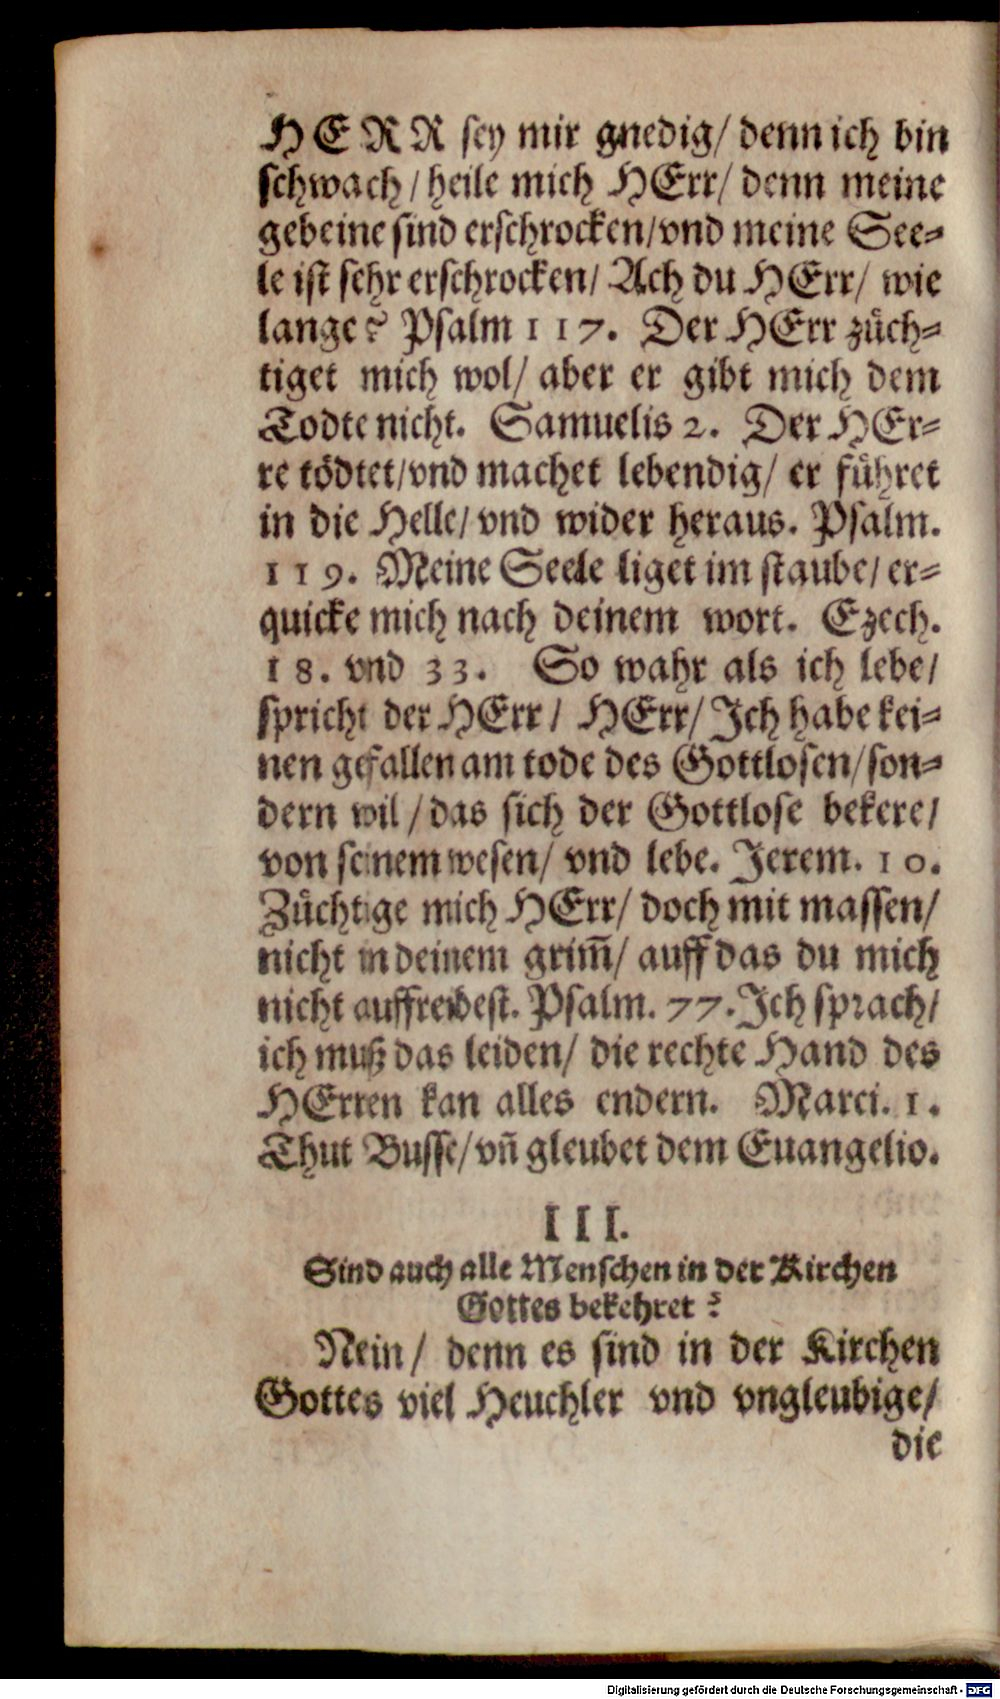 HERR sey mir gnedig/ denn ich bin
schwach/ heile mich HErr/ denn meine
gebeine sind erschrocken/ vnd meine See-
le ist sehr erschrocken/ Ach du HErr/ wie
lange? Psalm 117. Der HErr züch-
tiget mich wol/ aber er gibt mich dem
Todte nicht. Samuelis 2. Der HEr-
re tödtet/ vnd machet lebendig/ er führet
in die Helle/ vnd wider heraus. Psalm.
119. Meine Seele liget im staube/ er-
quicke mich nach deinem wort. Ezech.
18. vnd 33. So wahr als ich lebe/
spricht der HErr/ HErr/ Ich habe kei-
nen gefallen am tode des Gottlosen/ son-
dern wil/ das sich der Gottlose bekere/
von seinem wesen/ vnd lebe. Jerem. 10.
Züchtige mich HErr/ doch mit massen/
nicht in deinem grim̃/ auff das du mich
nicht auffreibest. Psalm. 77. Ich sprach/
ich muß das leiden/ die rechte Hand des
HErren kan alles endern. Marci. 1.
Thut Busse/ vñ gleubet dem Euangelio.
III.
Sind auch alle Menschen in der Kirchen
Gottes bekehret?
Nein/ denn es sind in der Kirchen
Gottes viel Heuchler vnd vngleubige/
die
Digitalisierung gefördert durch die Deutsche Forschungsgemeinschaft - DFG